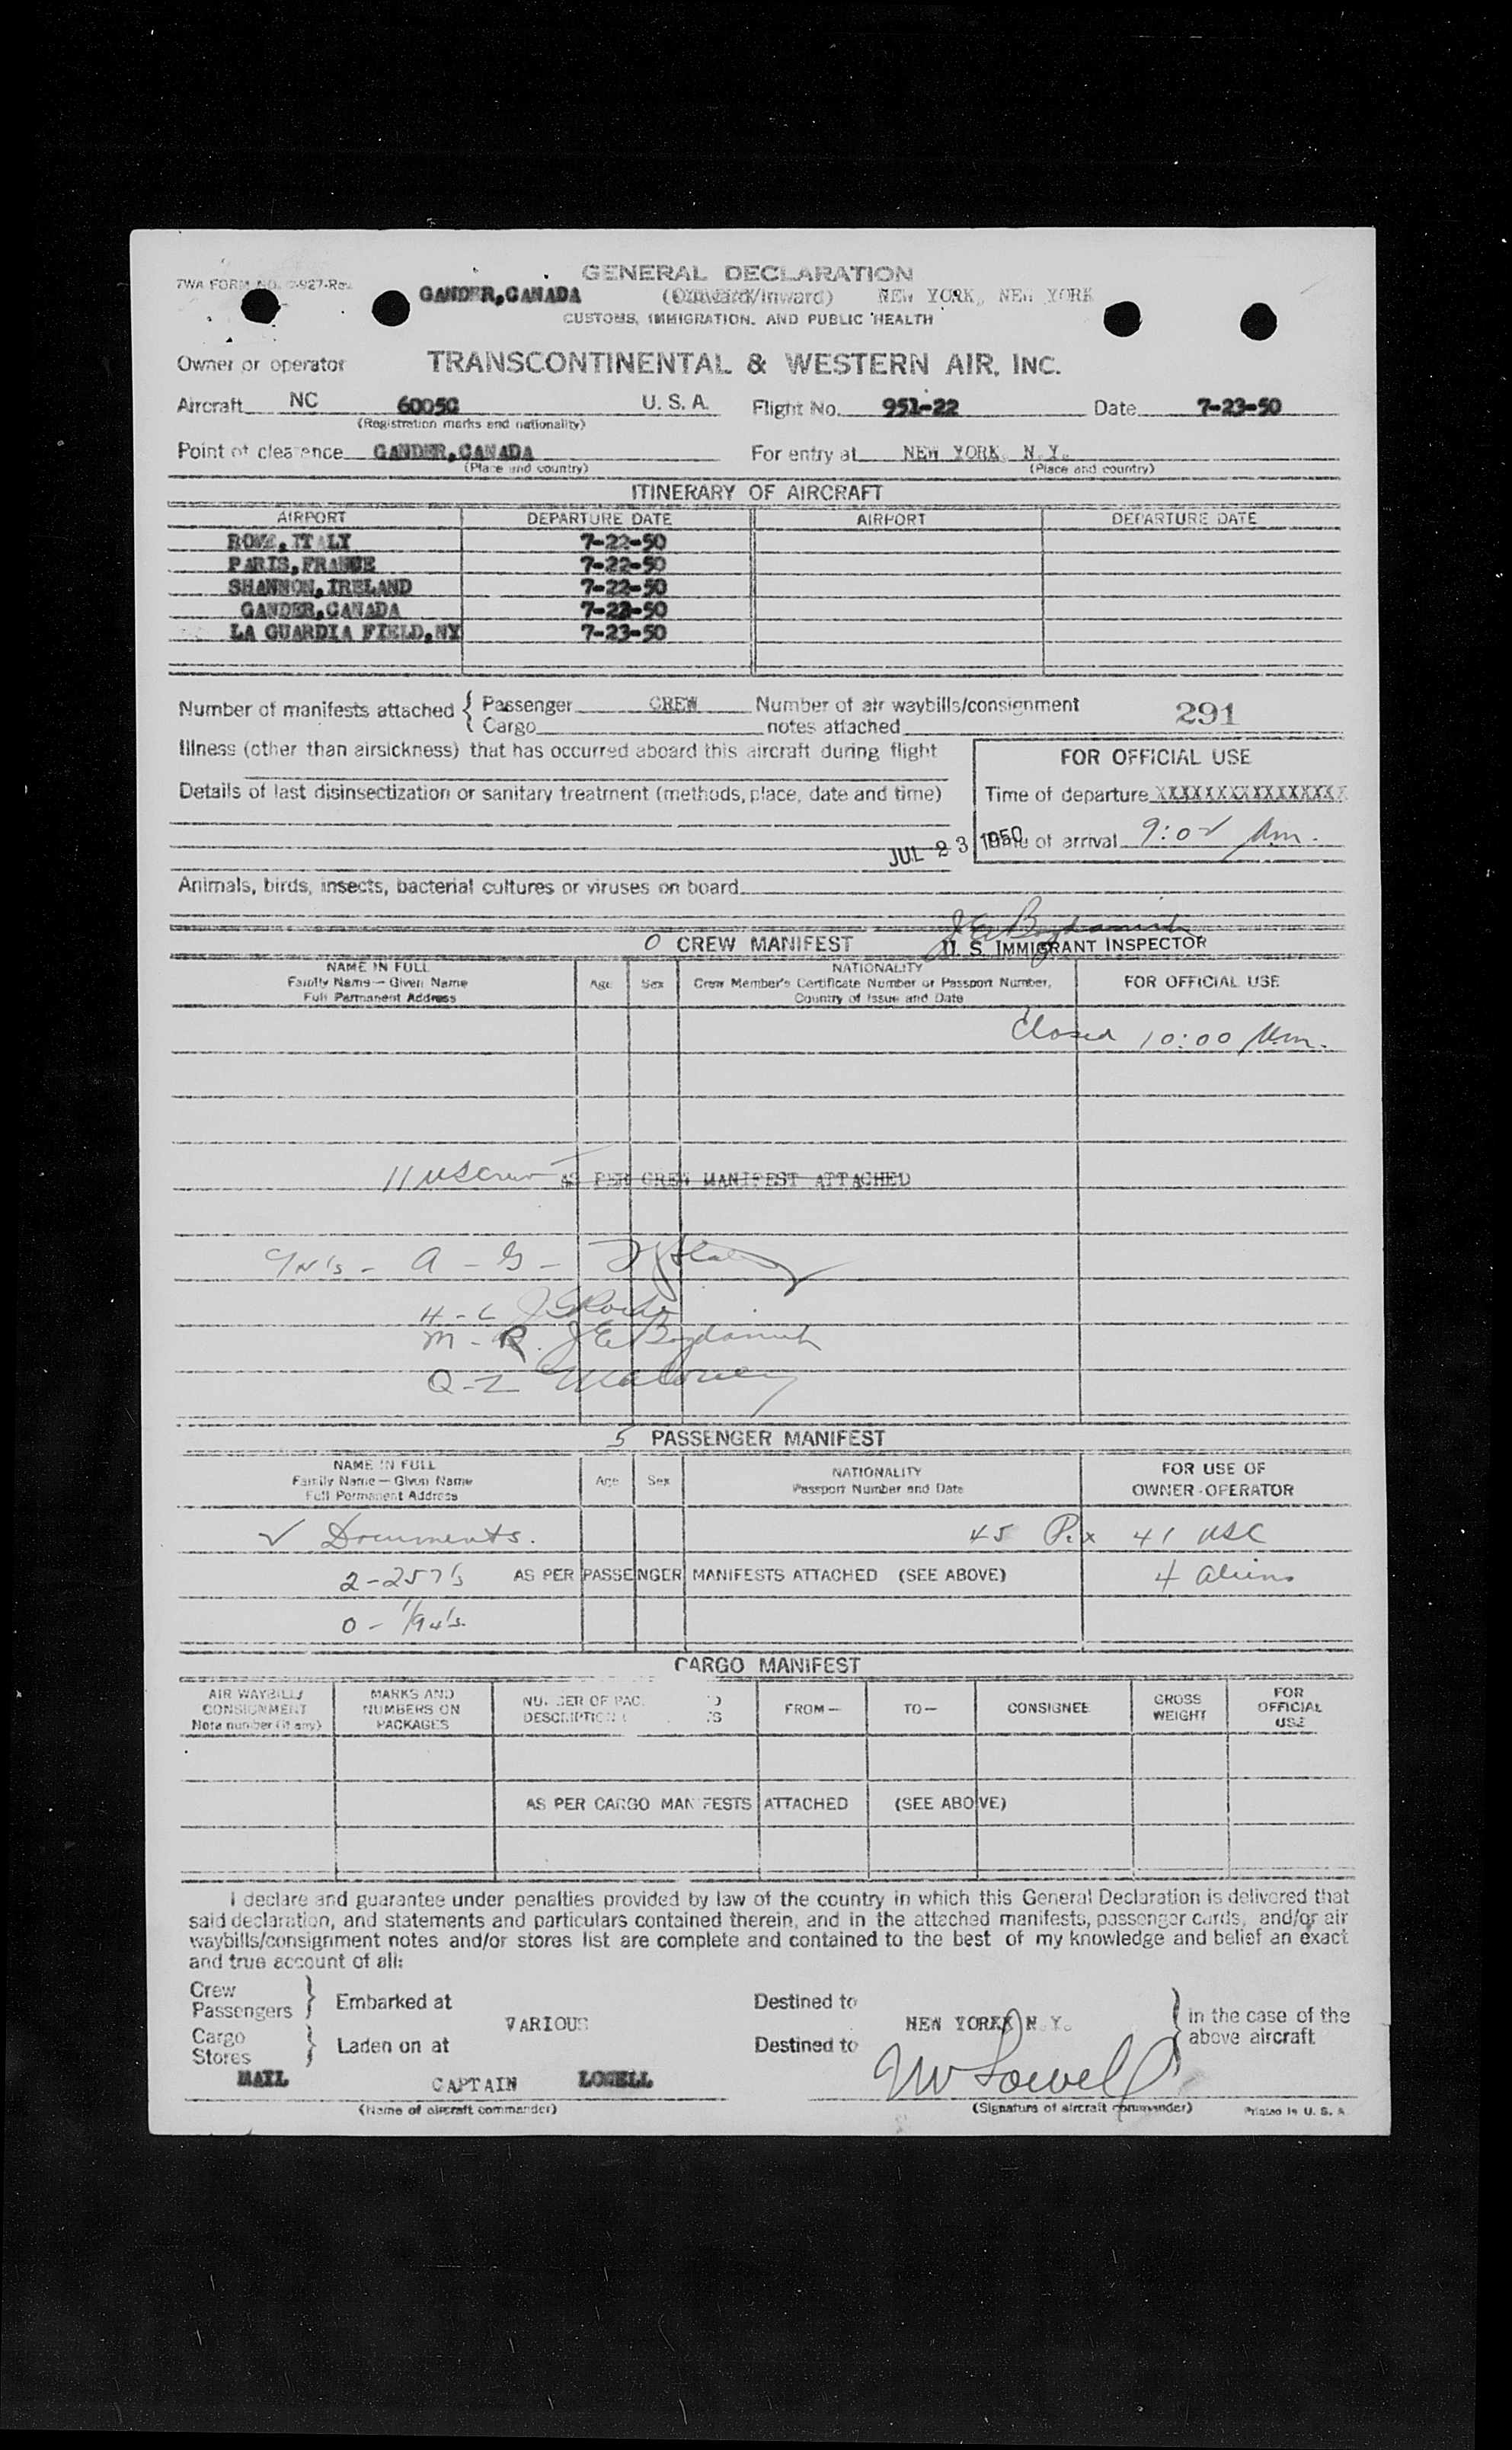 TWA FORM NO. -927-Rev.
GENERAL DECLARATION
GANDER, CANADA (Outward/Inward) NEW YORK, NEW YORK
CUSTOMS, IMMIGRATION, AND PUBLIC HEALTH
Owner or operator TRANSCONTINENTAL & WESTERN AIR, INC.
Aircraft NC 6005C U. S. A. Flight No. 951-22 Date 7-23-50
(Registration marks and nationality)
Point of clearence GANDER, CANADA For entry at NEW YORK N.Y.
(Place and country) (Place and country)
ITINERARY OF AIRCRAFT
AIRPORT DEPARTURE DATE AIRPORT DEPARTURE DATE
ROME, ITALY 7-22-50
PARIS, FRANCE 7-22-50
SHANNON, IRELAND 7-22-50
GANDER, CANADA 7-23-50
LA GUARDIA FIELD, NY 7-23-50
Number of manifests attached { Passenger CREW Number of air waybills/consignment 291
Cargo notes attached
Illness (other than airsickness) that has occurred aboard this aircraft during flight
FOR OFFICIAL USE
Details of last disinsectization or sanitary treatment (methods, place, date and time)
Time of departure XXXXXXXXXXXXXXXX
JUL 23 1950 Time of arrival 9:02 Am.
Animals, birds, insects, bacterial cultures or viruses on board
J E Bogdanich
0 CREW MANIFEST U. S. IMMIGRANT INSPECTOR
NAME IN FULL NATIONALITY
Family Name — Given Name Age Sex Crew Member's Certificate Number or Passport Number, FOR OFFICIAL USE
Full Permanent Address Country of Issue and Date
Closed 10:00 Am.
11 US Crew AS PER CREW MANIFEST ATTACHED
A - G -
H - L J Roche
M - R. J E Bogdanich
Q - Z Maloney
5 PASSENGER MANIFEST
NAME IN FULL NATIONALITY FOR USE OF
Family Name — Given Name Age Sex Passport Number and Date OWNER-OPERATOR
Full Permanent Address
√ Documents. 45 Pax 41 USC
2 - 257's AS PER PASSENGER MANIFESTS ATTACHED (SEE ABOVE) 4 aliens
0 - I/94's
CARGO MANIFEST
AIR WAYBILL/ MARKS AND FOR
CONSIGNMENT NUMBERS ON FROM— TO— CONSIGNEE GROSS OFFICIAL
Note number (if any) PACKAGES WEIGHT USE
AS PER CARGO MANIFESTS ATTACHED (SEE ABOVE)
I declare and guarantee under penalties provided by law of the country in which this General Declaration is delivered that
said declaration, and statements and particulars contained therein, and in the attached manifests, passenger cards, and/or air
waybills/consignment notes and/or stores list are complete and contained to the best of my knowledge and belief an exact
and true account of all:
Crew
Passengers } Embarked at Destined to in the case of the
VARIOUS NEW YORK N.Y. above aircraft
Cargo
Stores } Laden on at Destined to
MAIL CAPTAIN LOWELL JW Lowell
(Name of aircraft commander) (Signature of aircraft commander) Printed in U. S. A.